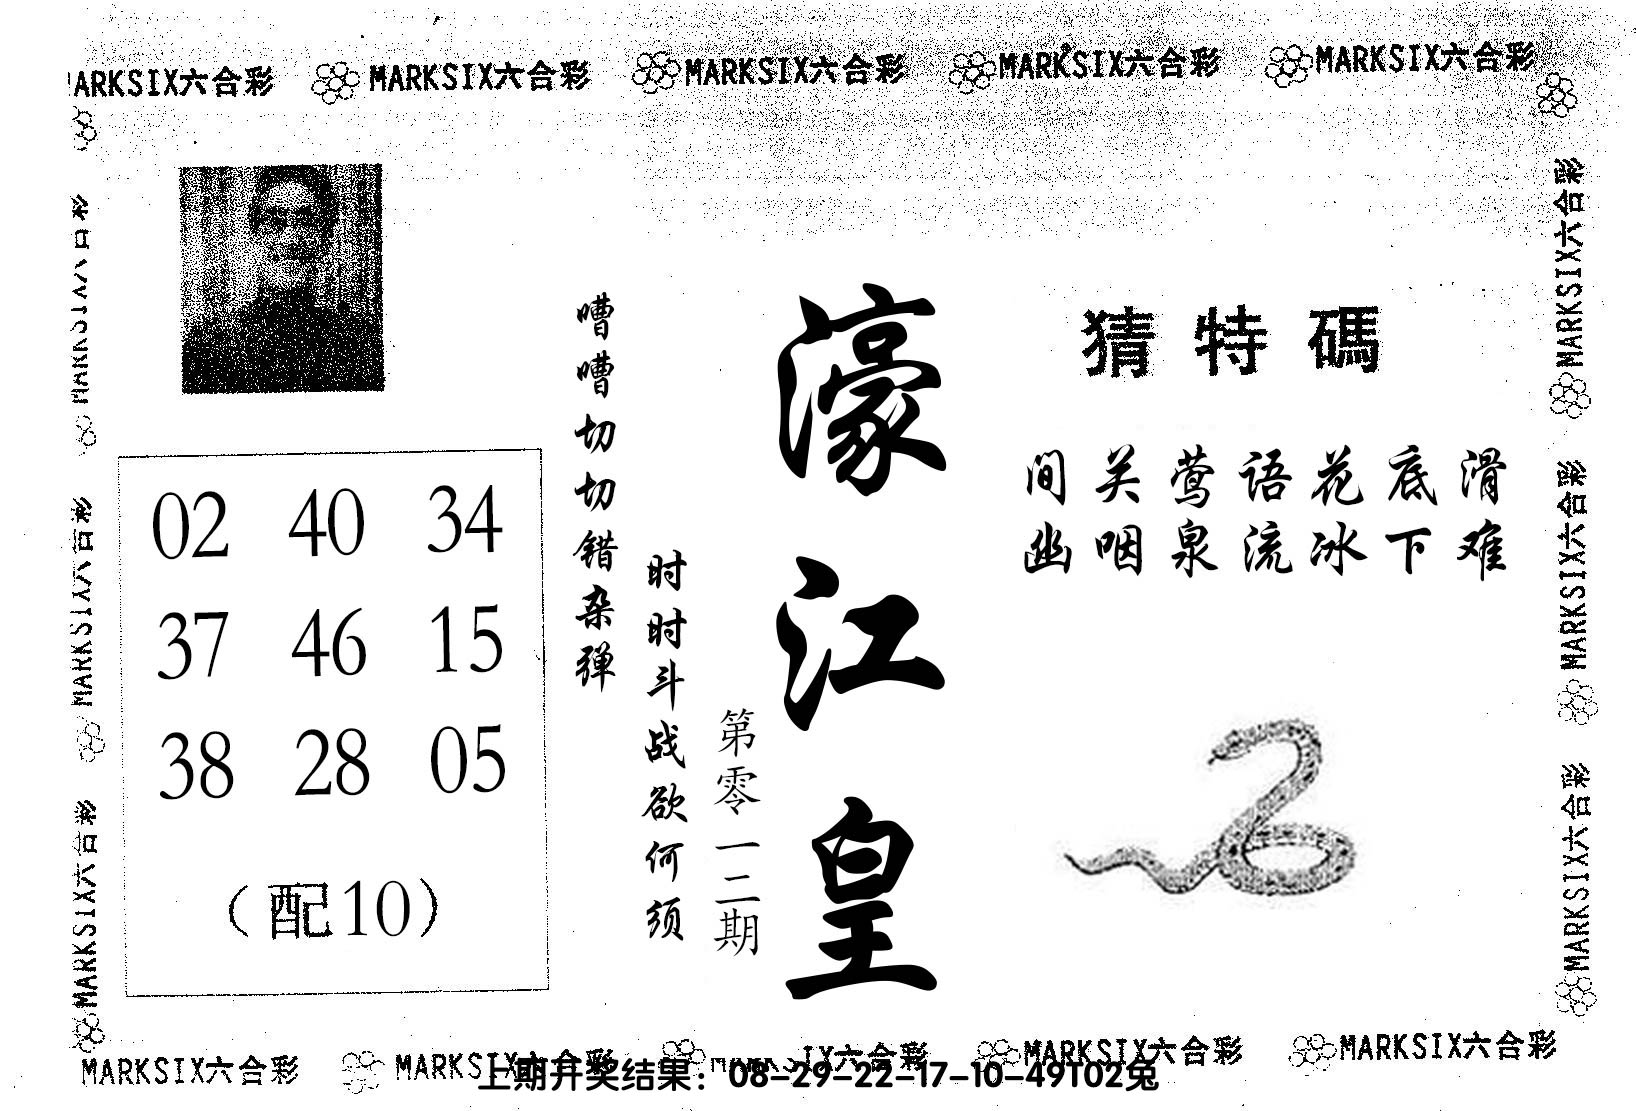 MARKSIX六合彩 MARKSIX六合彩 MARKSIX六合彩 MARKSIX六合彩 MARKSIX六合彩
猜特碼
间关莺语花底滑
幽咽泉流冰下难
濠江皇
第零一二期
时时斗战欲何须
嘈嘈切切错杂弹
02 40 34
37 46 15
38 28 05
(配10)
MARKSIX六合彩
MARKSIX六合彩
MARKSIX六合彩
MARKSIX六合彩
MARKSIX六合彩
MARKSIX六合彩
MARKSIX六合彩 MARKSIX六合彩 MARKSIX六合彩 MARKSIX六合彩 MARKSIX六合彩
上期开奖结果：08-29-22-17-10-49T02兔